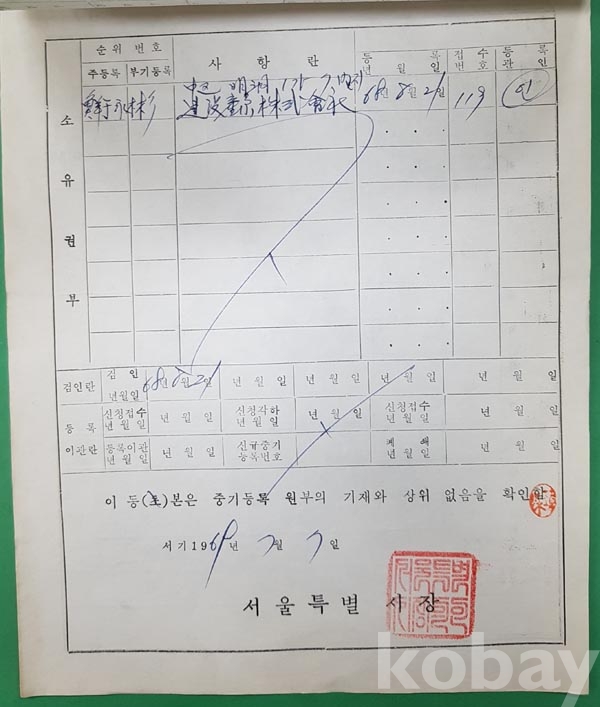 순위 번호
사항란
등록
년 월 일
접수
번호
등록
관인
주등록 부기등록
중구 明洞
建設 株式會社
68년 8월 21일 119 인
소유권부
검인란
검인
년월일
68년 8월 21일
년 월 일
년 월 일
년 월 일
년 월 일
등록
이관란
신청접수
년월일
년 월 일
신청각하
년월일
년 월 일
신청접수
년월일
년 월 일
등록이관
년월일
년 월 일
신규중기
등록번호
폐쇄
년월일
년 월 일
이 등(초)본은 중기등록 원부의 기재와 상위 없음을 확인함
서기 1969년 7월 7일
서울특별시장
kobay